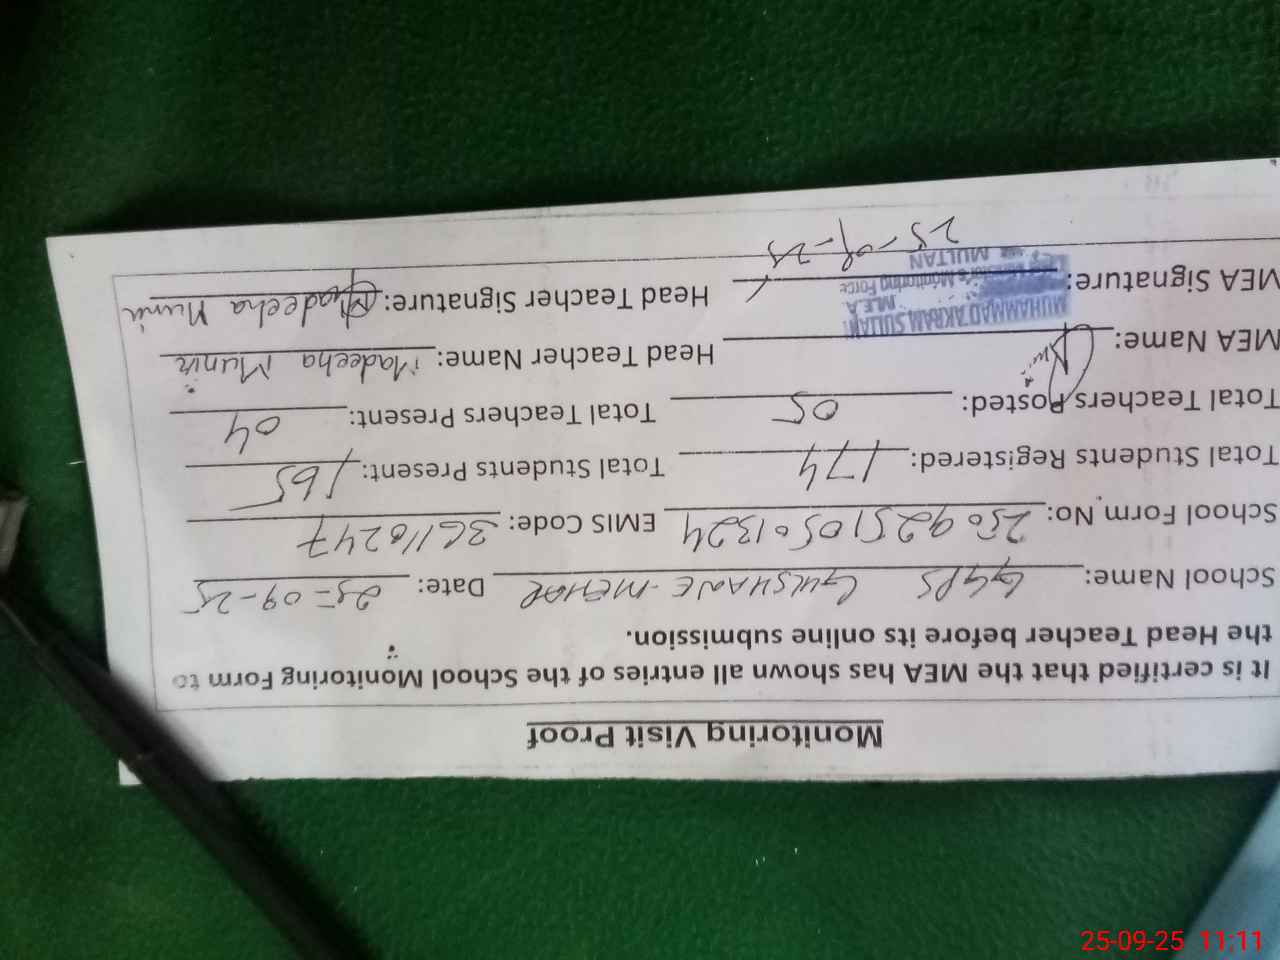 Monitoring Visit Proof
It is certified that the MEA has shown all entries of the School Monitoring Form to
the Head Teacher before its online submission.
School Name: GGPS GULSHANE-MEHAR Date: 25-09-25
School Form No: 25092510501324 EMIS Code: 36110247
Total Students Registered: 174 Total Students Present: 165
Total Teachers Posted: 05 Total Teachers Present: 04
MEA Name: Head Teacher Name: Madeeha Munir
MUHAMMAD AKRAM SULTAN
M.E.A
MEA Signature: Head Teacher Signature: Madeeha Munir
Monitoring Force
MULTAN
25-09-25
25-09-25 11:11